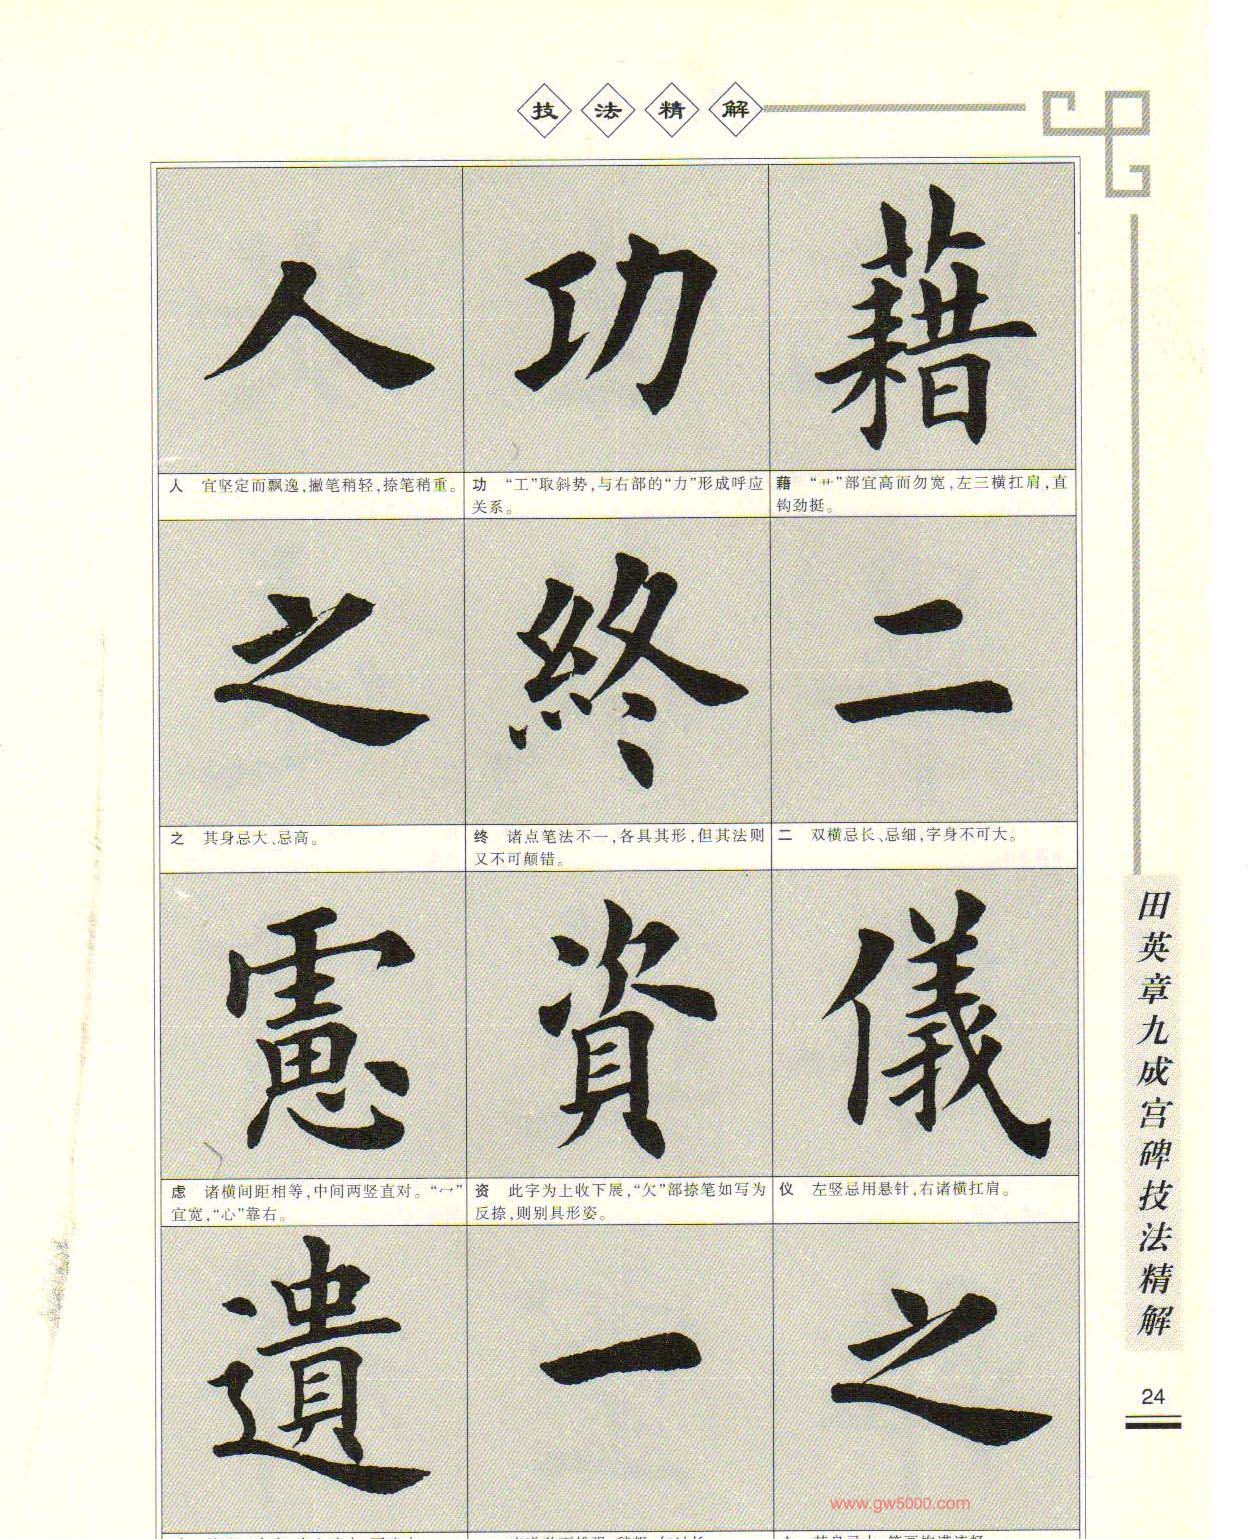 技法精解
人 功 藉
人 宜坚定而飘逸,撇笔稍轻,捺笔稍重。
功 “工”取斜势,与右部的“力”形成呼应
关系。
藉 “艹”部宜高而勿宽,左三横扛肩,直
钩劲挺。
之 終 二
之 其身忌大、忌高。
终 诸点笔法不一,各具其形,但其法则
又不可颠错。
二 双横忌长、忌细,字身不可大。
慮 資 儀
虑 诸横间距相等,中间两竖直对。“冖”
宜宽,“心”靠右。
资 此字为上收下展,“欠”部捺笔如写为
反捺,则别具形姿。
仪 左竖忌用悬针,右诸横扛肩。
遺 一 之
田英章九成宫碑技法精解
24
www.gw5000.com